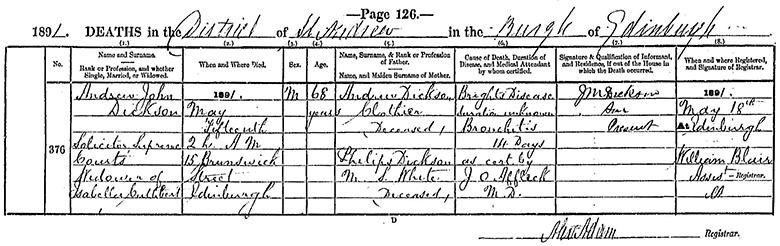 —Page 126.—
1891. DEATHS in the District of St Andrew in the Burgh of Edinburgh
(1.) (2.) (3.) (4.) (5.) (6.) (7.) (8.)
No. Name and Surname. Rank or Profession, and whether Single, Married, or Widowed. When and Where Died. Sex. Age. Name, Surname, & Rank or Profession of Father. Name, and Maiden Surname of Mother. Cause of Death, Duration of Disease, and Medical Attendant by whom certified. Signature & Qualification of Informant, and Residence, if out of the House in which the Death occurred. When and where Registered, and Signature of Registrar.
376
Andrew John
Dickson
Solicitor Supreme
Courts
Widower of
Isabella Cuthbert
1891.
May
Fifteenth
2 h. A M
15 Brunswick
Street
Edinburgh
M
68
years
Andrew Dickson
Clothier
Deceased,
Philips Dickson
M. S. White
Deceased,
Brights Disease
duration unknown
Bronchitis
14 Days
as cert by
J O Affleck
M.D.
J M Dickson
Son
Present
1891.
May 18th
At Edinburgh
William Blair
Assist—Registrar.
D
Alex Adam Registrar.